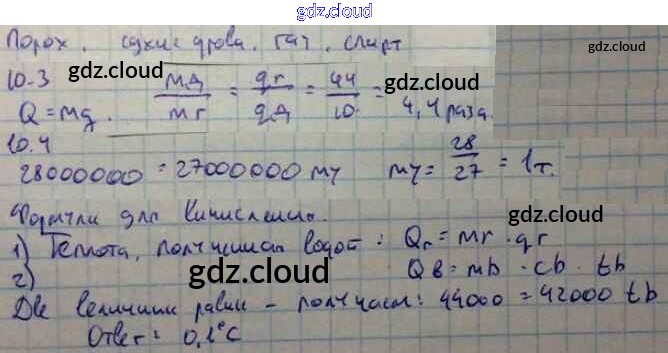 gdz.cloud
Порох. сухие дрова. газ. спирт
gdz.cloud
10.3 gdz.cloud mд/mг = qг/qд = 44/10 = 4,4 раза.
gdz.cloud
Q = mq.
10.4
28000000 = 27000000 my my = 28/27 = 1т.
Формулы для вычисления.
gdz.cloud
1) Теплота, полученная водой: Qг = mг · qг
2) Qв = mв · cв · tв
gdz.cloud
Две величины равны - получаем: 44000 = 42000 tв
Ответ: 0,1°C
gdz.cloud